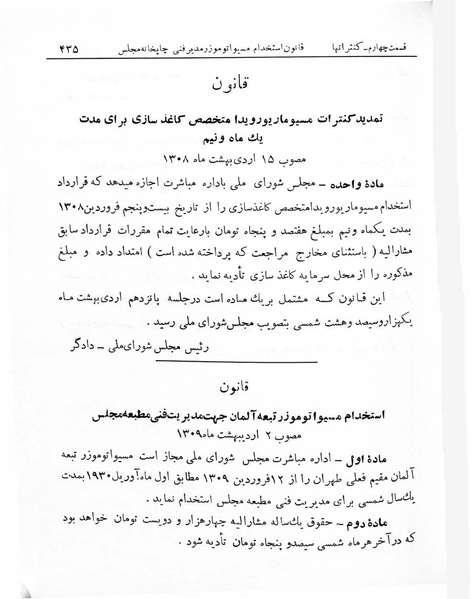 قسمت چهارم ـ کنتراتها قانون استخدام مسیو اتوموزر مدیر فنی چاپخانه مجلس ۴۳۵
قانون
تمدید کنترات مسیو ماریو رویدا متخصص کاغذ سازی برای مدت
یك ماه و نیم
مصوب ۱۵ اردی بهشت ماه ۱۳۰۸
مادهٔ واحده ـ مجلس شورای ملی باداره مباشرت اجازه میدهد که قرارداد
استخدام مسیو ماریو رویدا متخصص کاغذسازی را از تاریخ بیست و پنجم فروردین ۱۳۰۸
بمدت یکماه و نیم بمبلغ هفتصد و پنجاه تومان بارعایت تمام مقررات قرارداد سابق
مشارالیه ( باستثنای مخارج مراجعت که پرداخته شده است ) امتداد داده و مبلغ
مذکوره را از محل سرمایه کاغذ سازی تأدیه نماید .
این قانون که مشتمل بر یك ماده است در جلسه پانزدهم اردی بهشت ماه
یکهزار و سیصد و هشت شمسی بتصویب مجلس شورای ملی رسید .
رئیس مجلس شورای ملی ـ دادگر
قانون
استخدام مسیو اتوموزر تبعه آلمان جهت مدیریت فنی مطبعه مجلس
مصوب ۲ اردیبهشت ماه ۱۳۰۹
مادهٔ اول ـ اداره مباشرت مجلس شورای ملی مجاز است مسیو اتوموزر تبعه
آلمان مقیم فعلی طهران را از ۱۲ فروردین ۱۳۰۹ مطابق اول ماه آوریل ۱۹۳۰ بمدت
یك سال شمسی برای مدیریت فنی مطبعه مجلس استخدام نماید .
مادهٔ دوم ـ حقوق یك ساله مشارالیه چهار هزار و دویست تومان خواهد بود
که در آخر هر ماه شمسی سیصد و پنجاه تومان تأدیه شود .